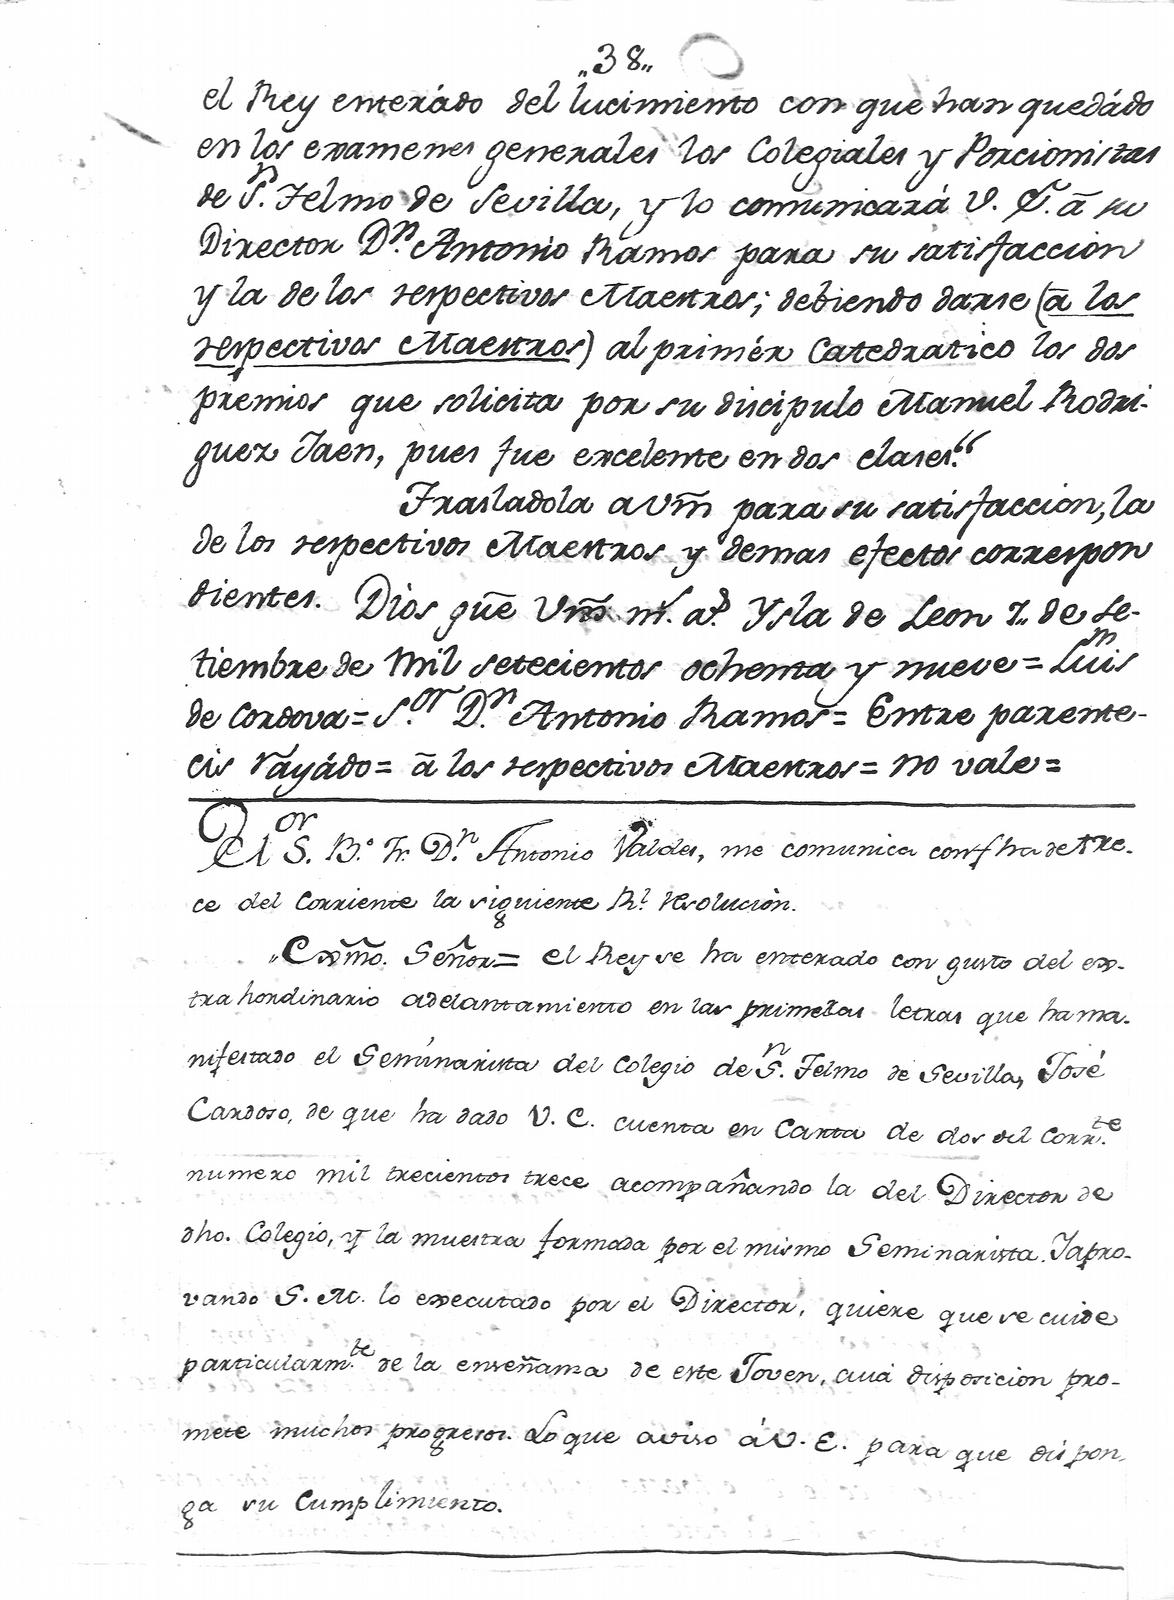 „38„
el Rey enterádo del lucimiento con que han quedádo
en los examenes generales los Colegiales y Porcionistas
de Sⁿ. Telmo de Sevilla, y lo comunicará V. E. ã su
Director Dⁿ. Antonio Ramos para su satisfaccion
y la de los respectivos Maestros; debiendo darse (ã los
respectivos Maestros) al primér Catedratico los dos
premios que solicita por su discipulo Manuel Rodri-
guez Jaen, pues fue excelente en dos clases.“
Trasladola a Vm̃ para su satisfaccion, la
de los respectivos Maestros y demas efectos correspon
dientes. Dios gũe Vm̃ mˢ. aˢ. Ysla de Leon 7„ de Se-
tiembre de Mil setecientos ochenta y nueve = Luis
de Cordova = S.ᵒʳ D.ⁿ Antonio Ramos = Entre parente-
cis rayádo = ã los respectivos Maestros = no vale =
El S.ᵒʳ B.º Fr. D.ⁿ Antonio Valdes, me comunica con fha de tre-
ce del corriente la siguiente Rˡ. resolucion.
„Exm̃o. Señor = el Rey se ha enterado con gusto del ex-
trahordinario adelantamiento en las primeras letras que ha ma-
nifestado el Seminarista del Colegio de Sⁿ. Telmo de Sevilla, José
Cardoso, de que ha dado V. E. cuenta en Carta de dos del Corr.ᵗᵉ
numero mil trecientos trece acompañando la del Director de
dho. Colegio, y la muestra formada por el mismo Seminarista. Y apro-
vando S. M. lo executado por el Director, quiere que se cuide
particularm.ᵗᵉ de la enseñansa de este Joven, cuia disposicion pro-
mete muchos progresos. Lo que aviso á V. E. para que dispon-
ga su cumplimiento.